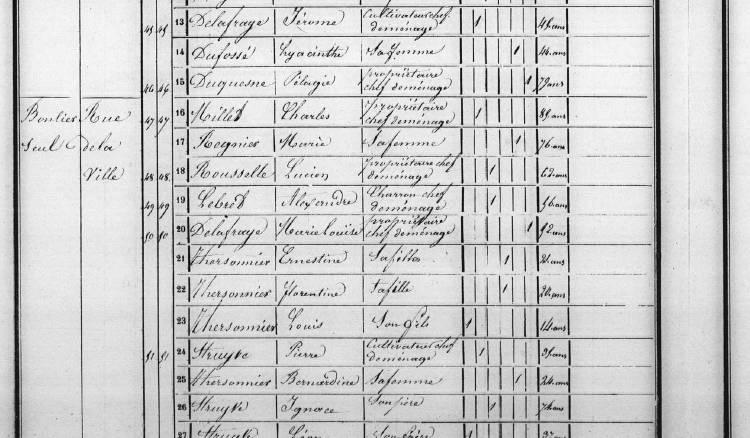 45 45 13 Delafraye Jérome Cultivateur chef de ménage 1
14 Dufossé Hyacinthe Sa femme 1 44 ans
46 46 15 Duquesne Pélagie propriétaire chef de ménage 1 79 ans
Boulier Rue 47 47 16 Millet Charles propriétaire chef de ménage 1 ans
Seul de la 17 Regnier Marie Sa femme 1 76 ans
Ville 48 48 18 Rousselle Lucien propriétaire chef de ménage 1 62 ans
49 49 19 Lebret Alexandre Charron chef de ménage 1 56 ans
50 50 20 Delafraye Marie Louise propriétaire chef de ménage 1 52 ans
21 Thersonnier Ernestine Sa fille 1 21 ans
22 Thersonnier florentine Sa fille 1 20 ans
23 Thersonnier Louis Son fils 1 14 ans
51 51 24 Struyve Pierre Cultivateur chef de ménage 1 ans
25 Thersonnier Bernardine Sa femme 1 24 ans
26 Struyve Ignace Son père 1 74 ans
27 Struyve Léon Son frère 1 ans